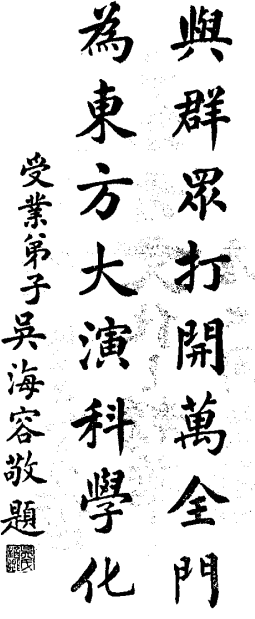 與群眾打開萬全門
為東方大演科學化
受業弟子吳海容敬題